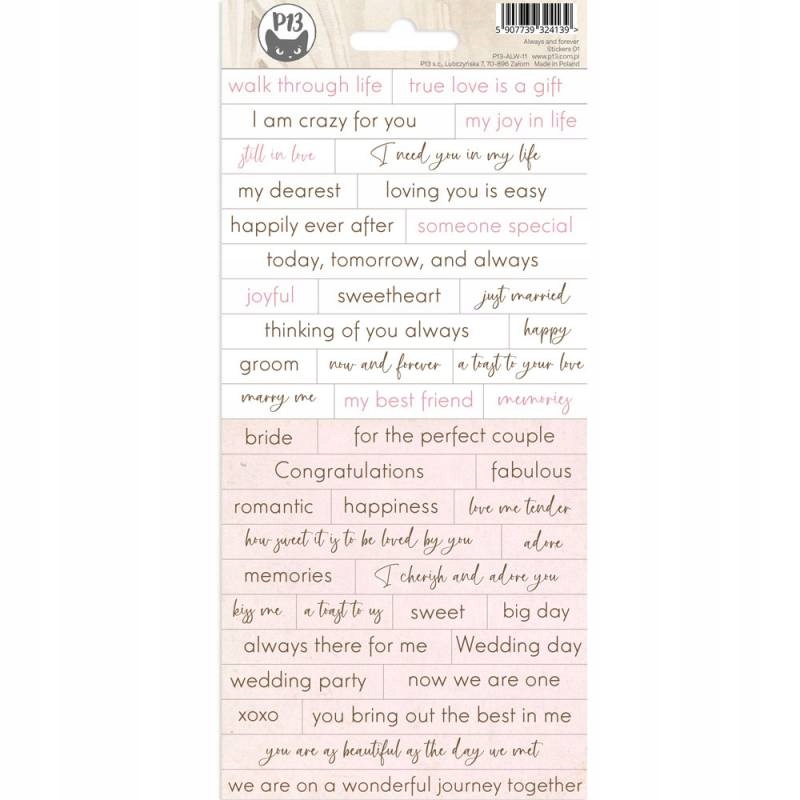 P13
5 907739 324139 >
Always and forever
Stickers 01
P13-ALW-11 www.p13.com.pl
P13 s.c., Lubczyńska 7, 70-896 Załom Made in Poland
walk through life true love is a gift
I am crazy for you my joy in life
still in love I need you in my life
my dearest loving you is easy
happily ever after someone special
today, tomorrow, and always
joyful sweetheart just married
thinking of you always happy
groom now and forever a toast to your love
marry me my best friend memories
bride for the perfect couple
Congratulations fabulous
romantic happiness love me tender
how sweet it is to be loved by you adore
memories I cherish and adore you
kiss me a toast to us sweet big day
always there for me Wedding day
wedding party now we are one
xoxo you bring out the best in me
you are as beautiful as the day we met
we are on a wonderful journey together